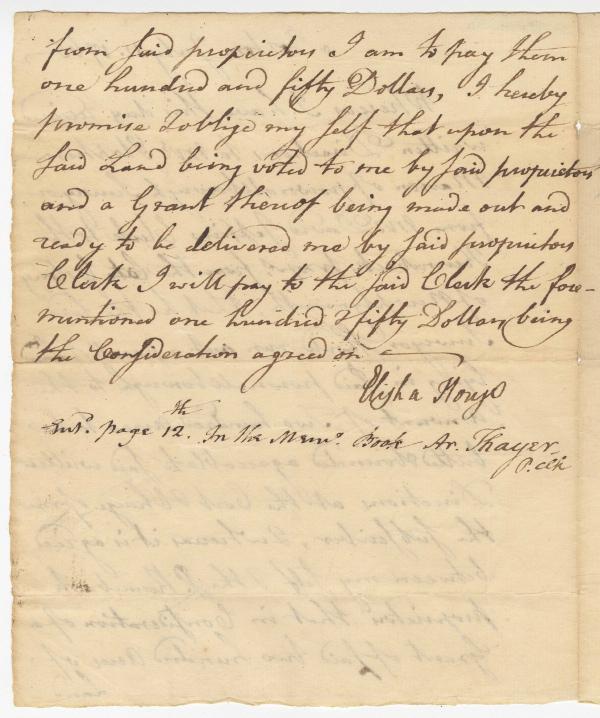 from said proprietors I am to pay them
one hundred and fifty Dollars, I hereby
promise & oblige my self that upon the
said Land being voted to me by said proprietors
and a Grant thereof being made out and
ready to be delivered me by said proprietors
Clerk I will pay to the said Clerk the fore-
mentioned one hundred & fifty Dollars, being
the Consideration agreed on
Elisha House
Ent. page 12.th In the Mem.o Book Ar. Thayer
P. Clk